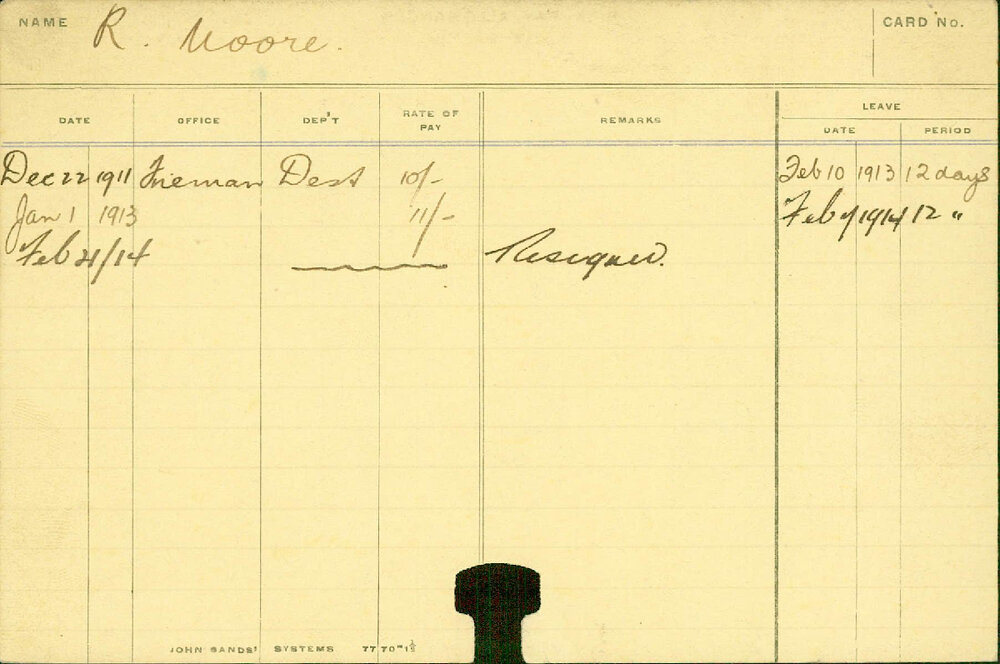 NAME R. Moore. CARD No.
LEAVE
DATE OFFICE DEP'T RATE OF PAY REMARKS DATE PERIOD
Dec 22 1911 Fireman Dest 10/- Feb 10 1913 12 days
Jan 1 1913 11/- Feb 1914 12 "
Feb 21/14 Resigned.
JOHN SANDS' SYSTEMS